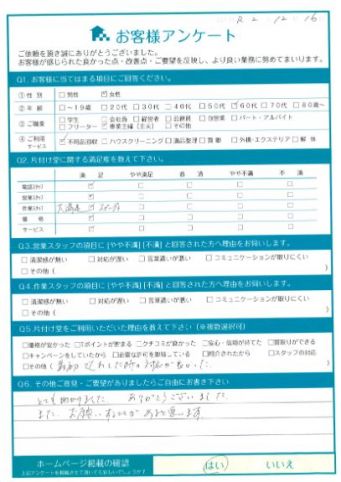 R 2. 12. 16
お客様アンケート
ご依頼を頂き誠にありがとうございました。
お客様が感じられた良かった点・改善点・ご要望を反映し、より良い業務に努めてまいります。
Q1. お客様に当てはまる項目にご回答ください。
① 性 別 □男性 ☑女性
② 年 齢 □~19歳 □20代 □30代 □40代 □50代 ☑60代 □70代 □80歳~
③ ご職業 □学生 □会社員 □経営者 □公務員 □自営業 □パート・アルバイト
□フリーター ☑専業主婦（主夫） □その他
④ ご利用サービス ☑不用品回収 □ハウスクリーニング □遺品整理 □買取 □外構・エクステリア □解 体
Q2. 片付け堂に関する満足度を教えて下さい。
満 足 やや満足 普 通 やや不満 不 満
電話対応 ☑ □ □ □ □
営業対応 ☑ □ □ □ □
作業対応 大満足 ☑ □ □ □ □
価 格 ☑ □ □ □ □
サービス ☑ □ □ □ □
Q3. 営業スタッフの項目に [やや不満] [不満] と回答された方へ理由をお伺いします。
□清潔感が無い □対応が遅い □言葉遣いが悪い □コミュニケーションが取りにくい
□その他 (
Q4. 作業スタッフの項目に [やや不満] [不満] と回答された方へ理由をお伺いします。
□清潔感が無い □対応が遅い □言葉遣いが悪い □コミュニケーションが取りにくい
□その他 (
Q5. 片付け堂をご利用いただいた理由を教えて下さい（※複数選択可）
□価格が安かった □Tポイントが貯まる □クチコミが良かった □安心・信頼が持てた □買取りができる
□キャンペーンをしていたから □必要な許可を取得している □紹介されたから □スタッフの対応
□その他 (
Q6. その他ご意見・ご要望がありましたらご自由にお書き下さい
とても助かりました。 ありがとうございました。
また、お願い
ホームページ掲載の確認
はい いいえ